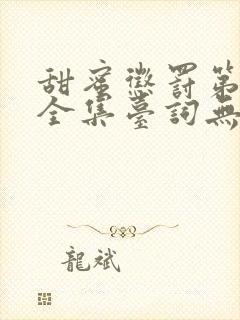 甜蜜懲罰第
全集臺詞無
龍斌